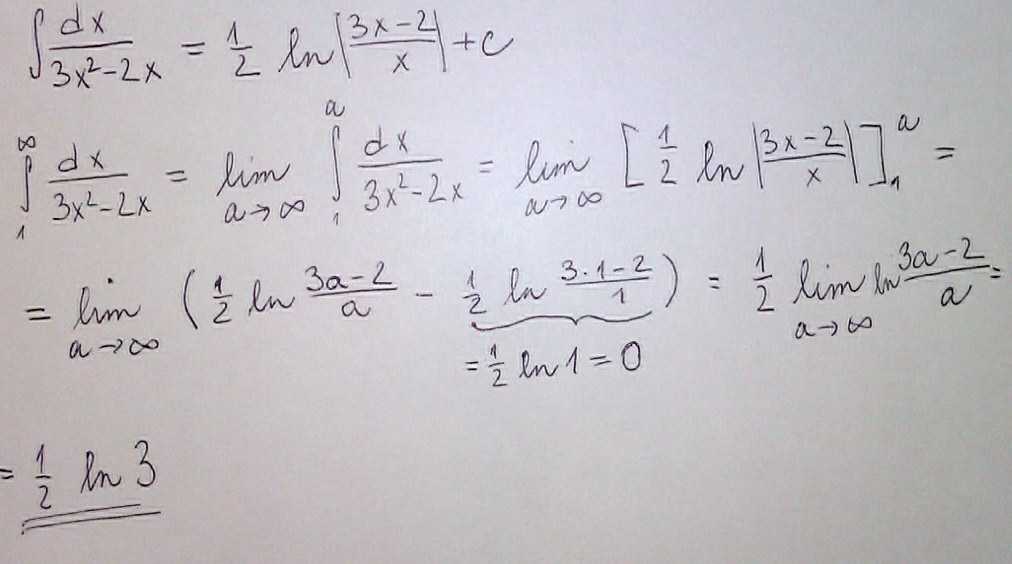 ∫ dx/(3x²-2x) = 1/2 ln|(3x-2)/x| + c
∫₁^∞ dx/(3x²-2x) = lim_{a→∞} ∫₁^a dx/(3x²-2x) = lim_{a→∞} [1/2 ln|(3x-2)/x|]₁^a =
= lim_{a→∞} (1/2 ln (3a-2)/a - 1/2 ln (3·1-2)/1) = 1/2 lim_{a→∞} ln (3a-2)/a =
= 1/2 ln 1 = 0
= 1/2 ln 3